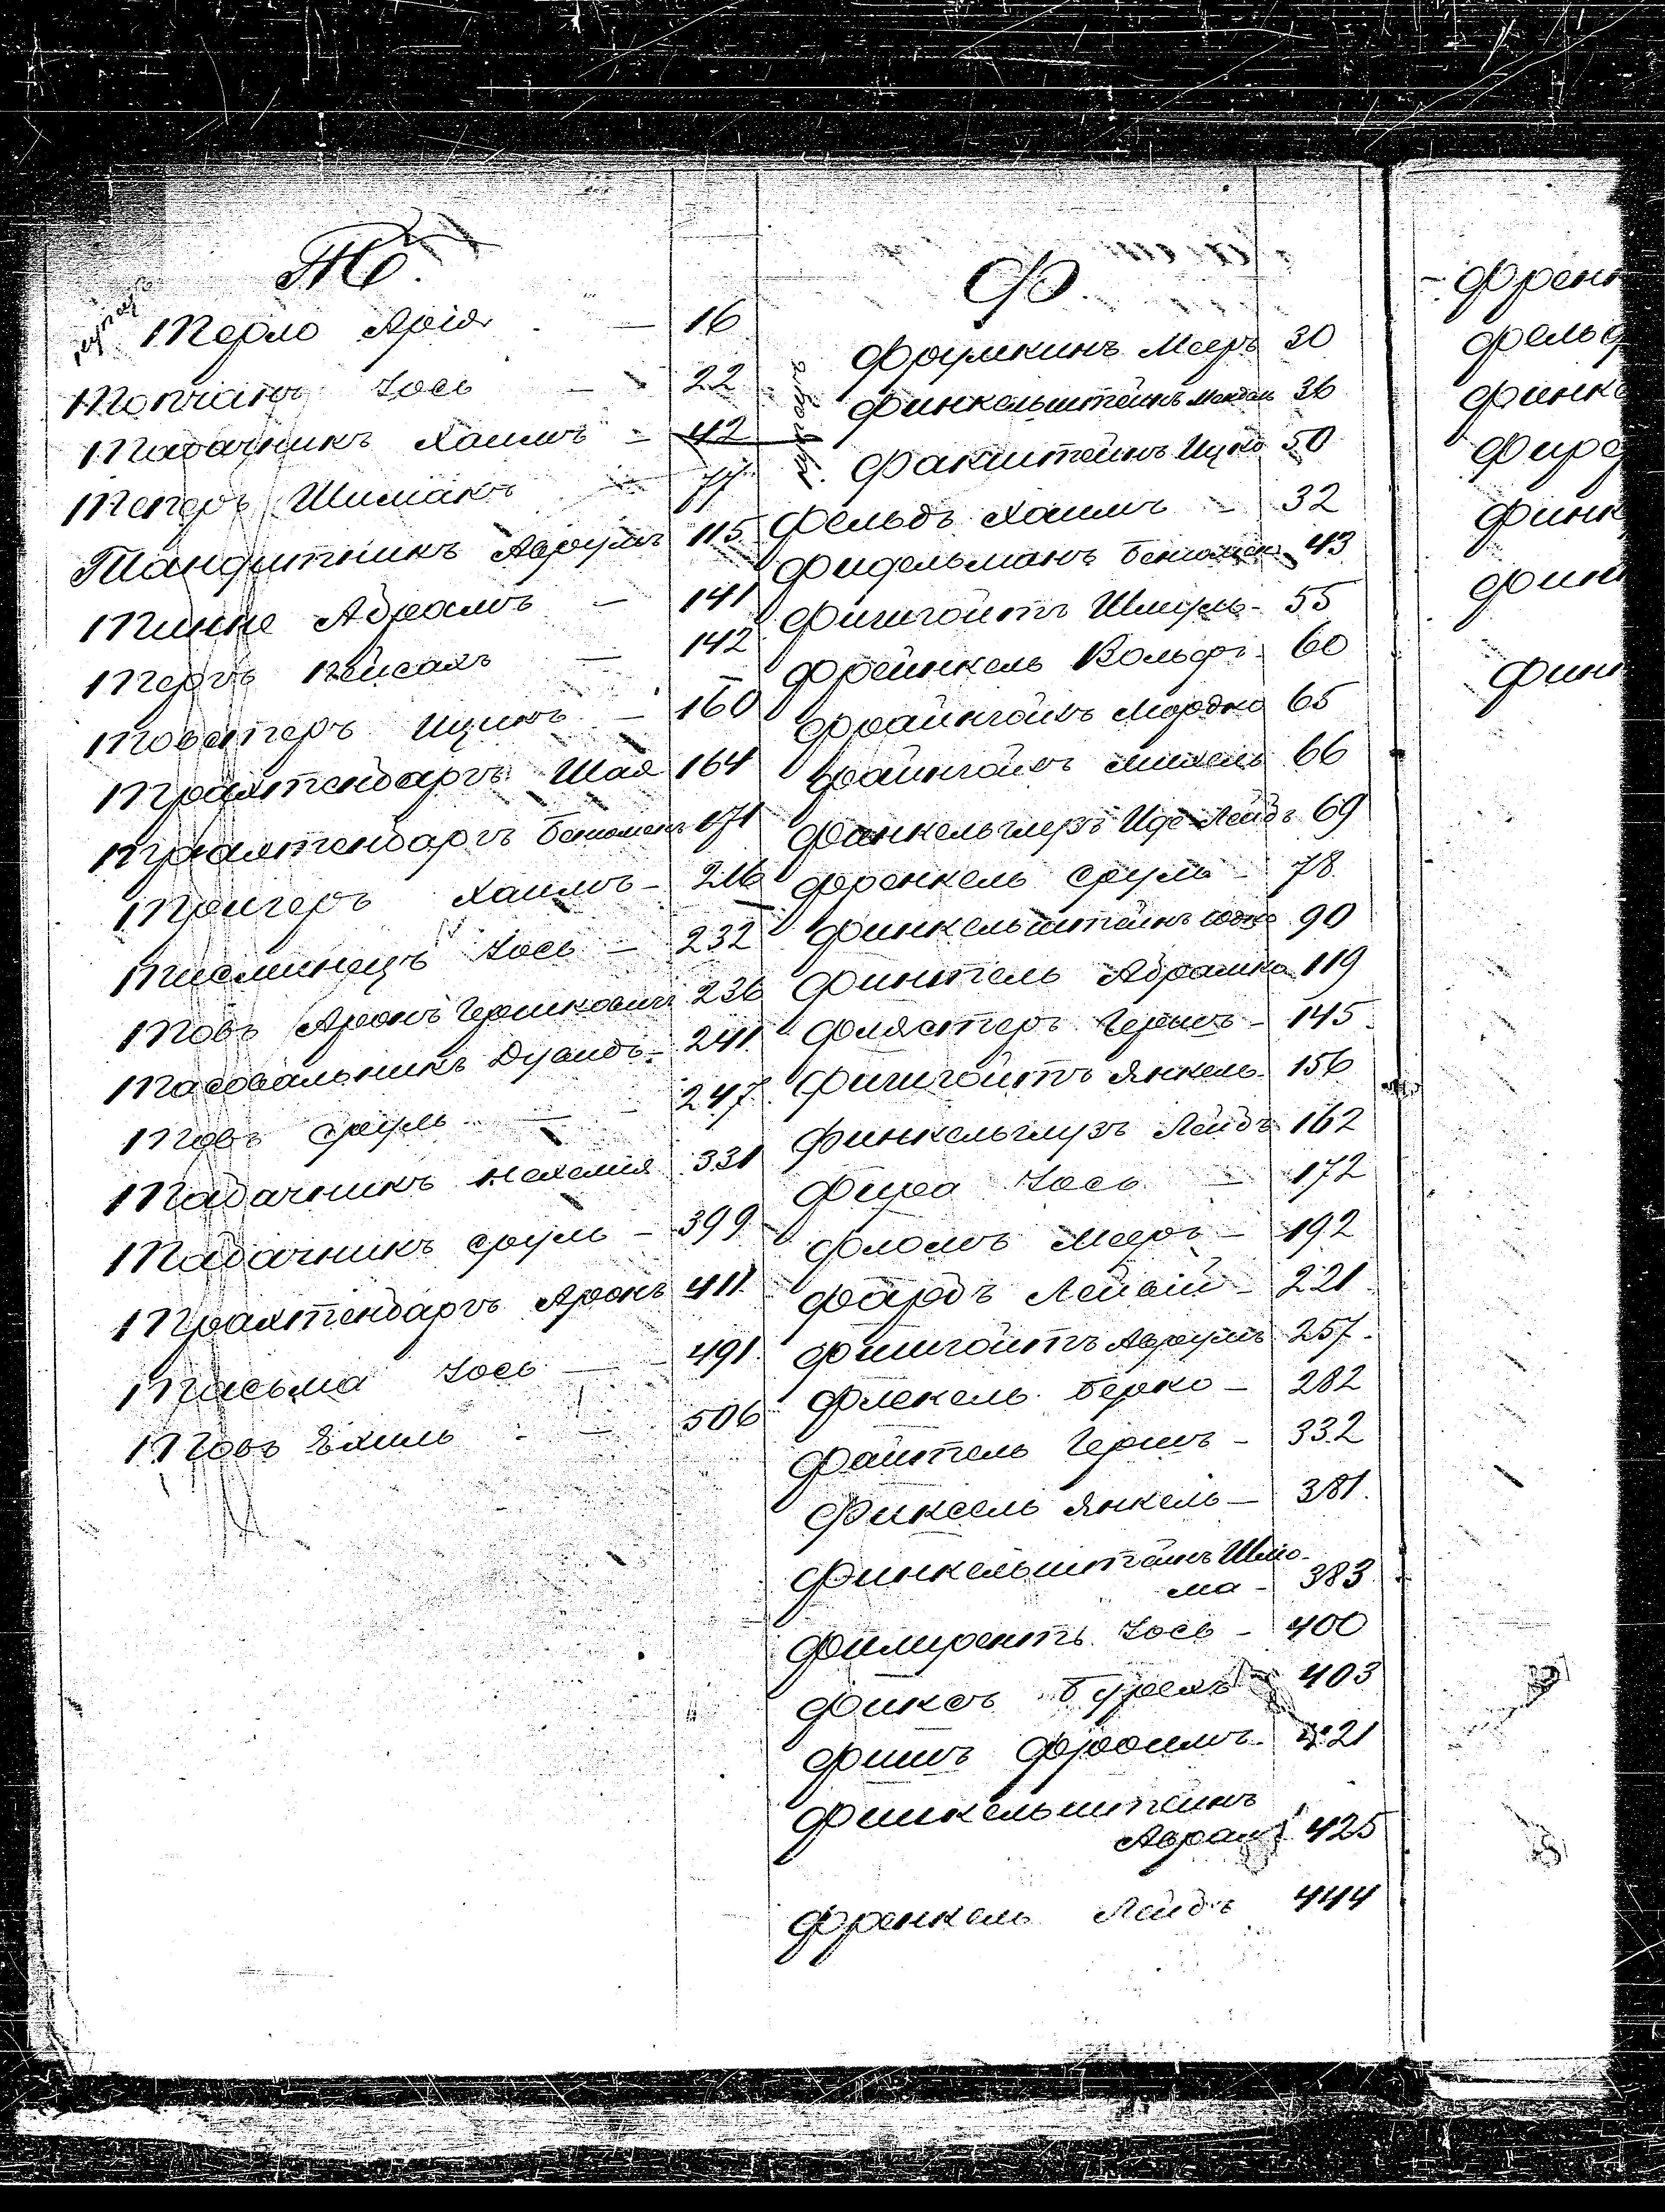 Т.
Терло Арія — 16
Топчанъ Іось — 22
Табачникъ Хаимъ — 42
Теперъ Шиманъ — 77
Тандитникъ Авруммъ 115
Тинне Абрамъ — 141
Терръ Пейсахъ — 142
Товстеръ Ицикъ — 160
Трахтенбаргъ Шая 164
Трахтенбаргъ Беніоменъ 171
Тригеръ Хаимъ — 216
Тисминецъ Іось — 232
Товъ Аронъ Гершковичъ 236
Тасовальникъ Дувидъ — 241
Товъ Сруль — 247
Табачникъ Нехемія 331
Табачникъ Сруль — 399
Трахтенбаргъ Аронъ 411
Тасьма Іось — 491
Товъ Ехиль — 506
Ф.
Фрумкинъ Мееръ 30
Финкельштейнъ Мендель 36
Факштейнъ Ицко 50
Фельдъ Хаимъ — 32
Фидельманъ Беніоменъ 43
Фишгойтъ Шмуль — 55
Фрейнкель Вольфъ 60
Фрайнгойзъ Мордко 65
Файнгойзъ Михель 66
Финкельглезъ Иде-Лейбъ 69
Френкель Сруль — 78
Финкельштейнъ Юдко 90
Финтель Абрамко 119
Флястеръ Гершъ — 145
Фишгойтъ Янкель 156
Финкельглузъ Лейбъ 162
Фира Іось — 172
Фломъ Мееръ — 192
Фарбъ Лейвій — 221
Фишгойтъ Аврумъ 257
Флекель Берко — 282
Файтель Гершъ — 332
Фиксель Янкель — 381
Финкельштейнъ Шлио-
ма — 383
Филуретъ Іось — 400
Фиксъ Бурехъ 403
Фишъ Фроимъ — 421
Финкельштейнъ
Аврамъ 425
Френкель Лейбъ 444
Френк
Фельд
Финке
Финк
Финк